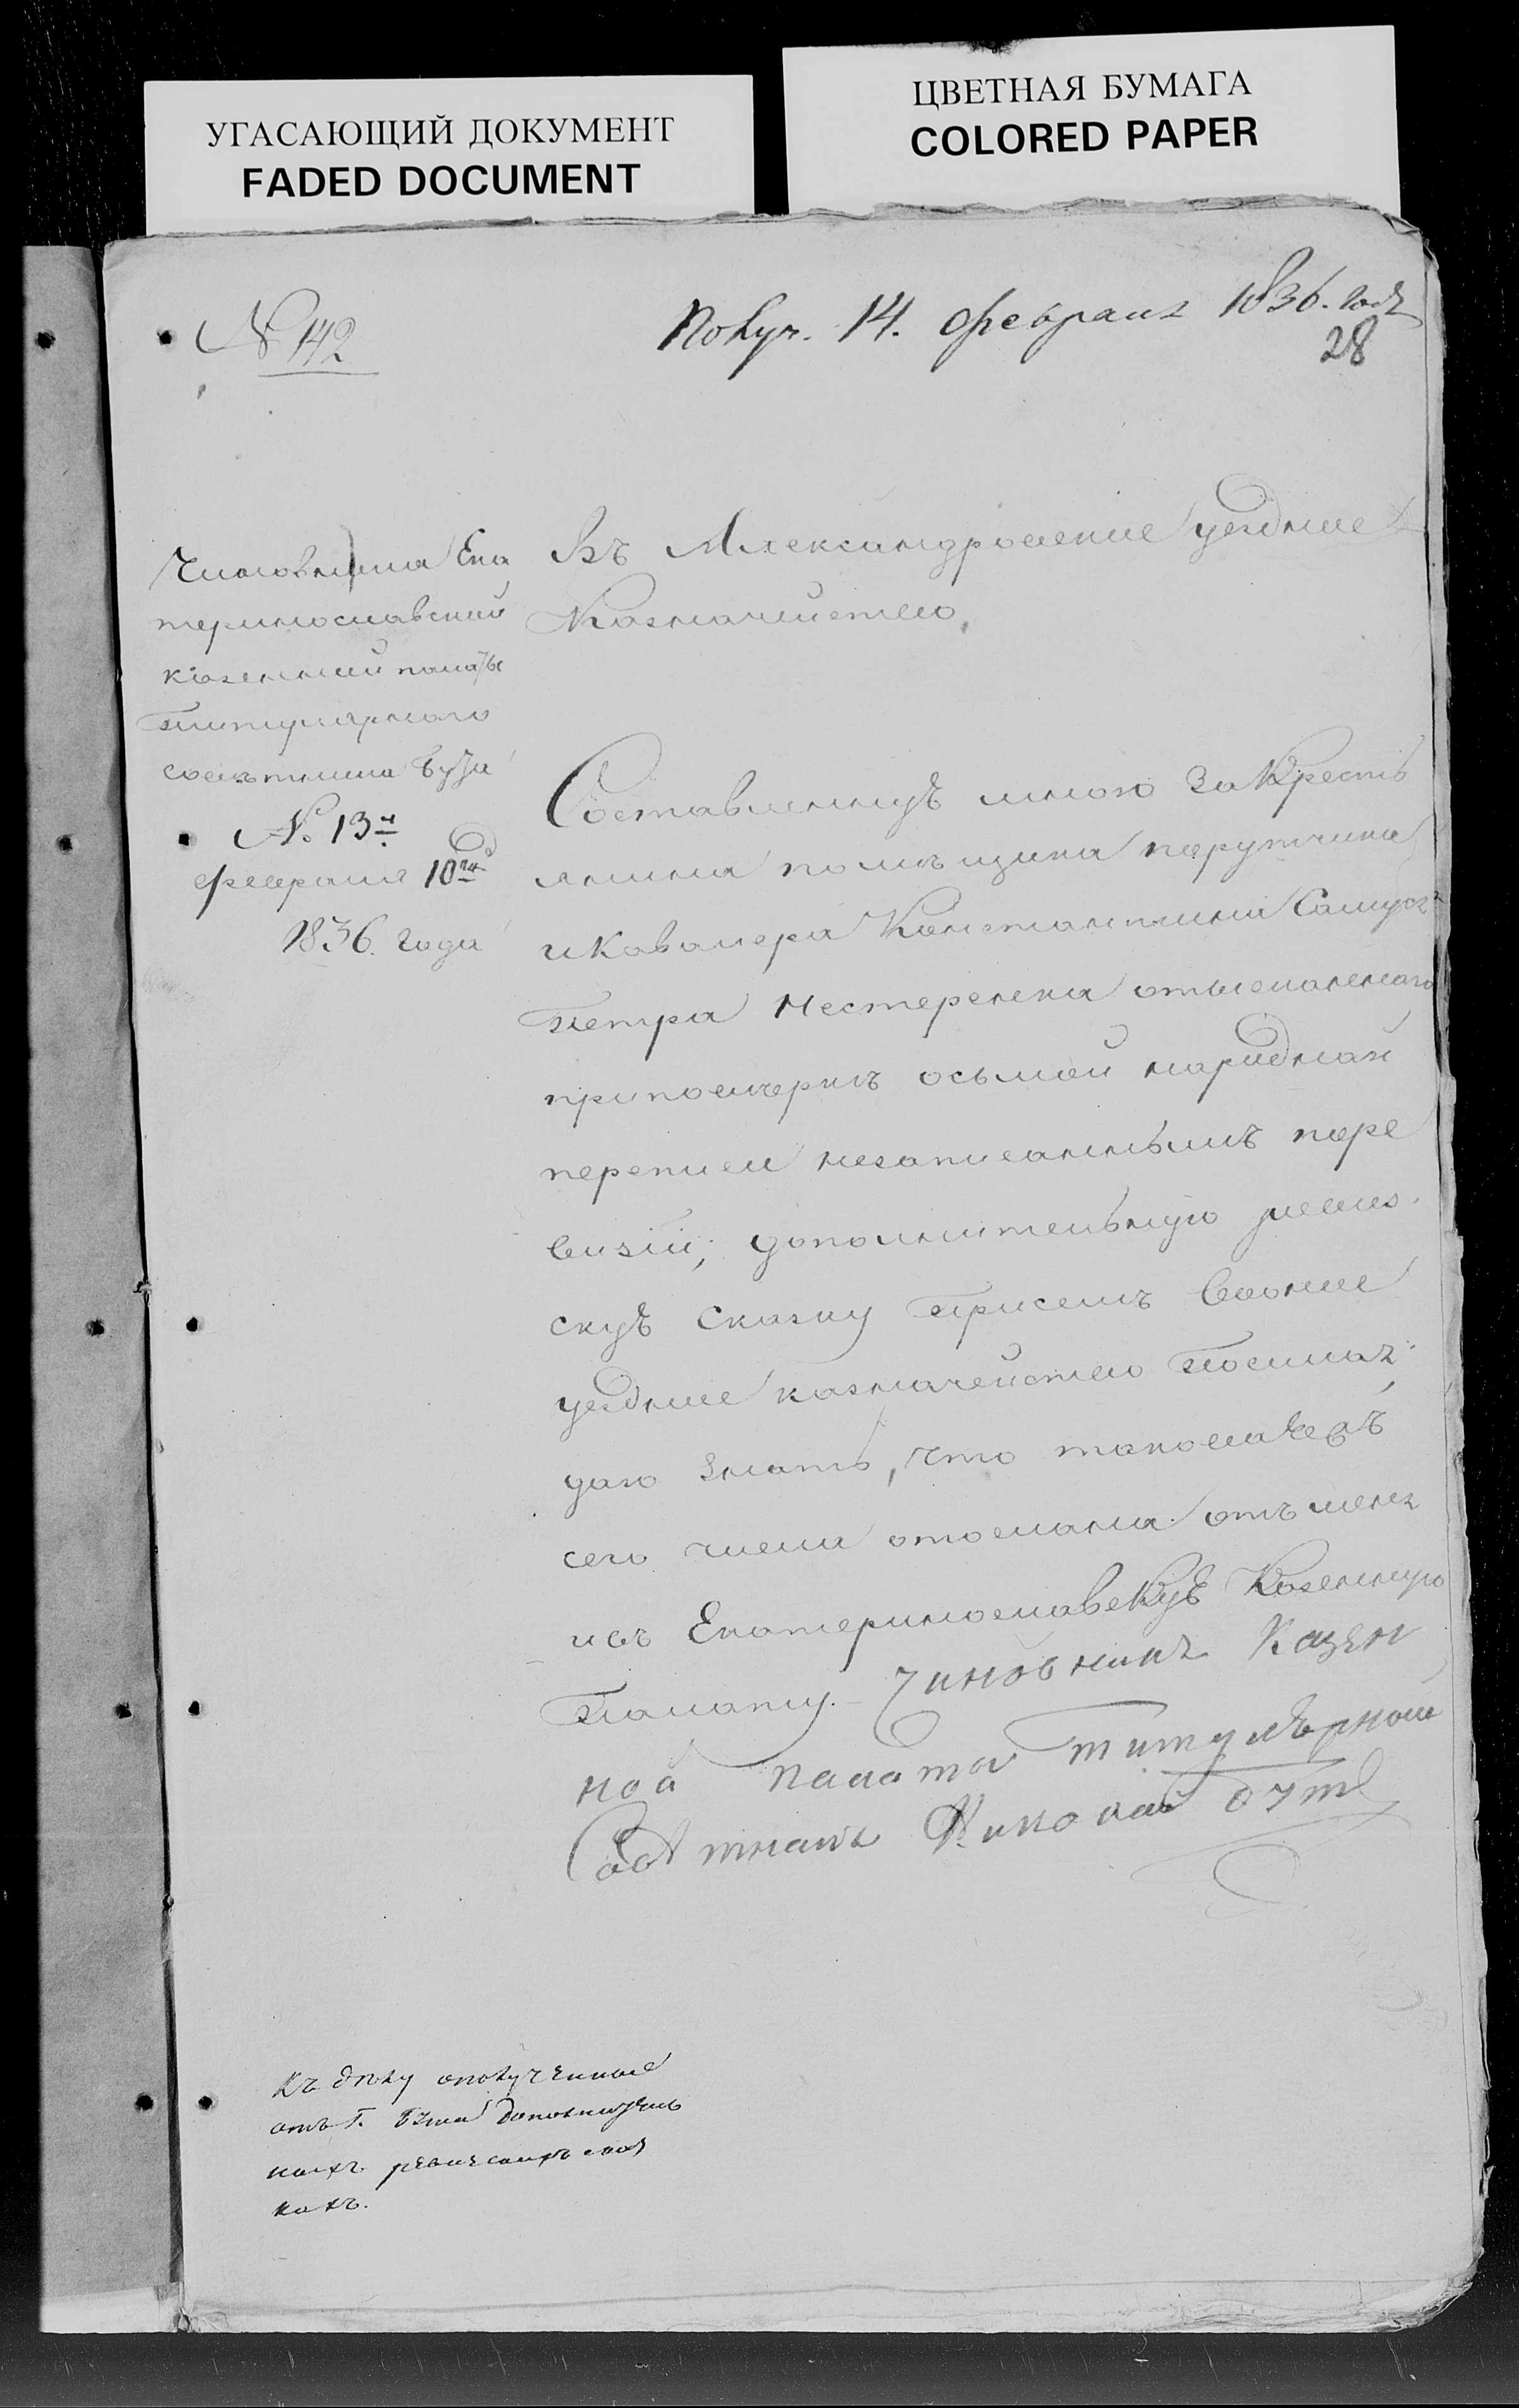 УГАСАЮЩИЙ ДОКУМЕНТ
FADED DOCUMENT
ЦВЕТНАЯ БУМАГА
COLORED PAPER
№ 142
Получ. 14. февраля 1836. года
28
Чиновника Ека
теринославской
казенной палаты
Титулярного
советника
№ 13й
февраля 10го
1836. года
Въ Александровское уездное
Казначейство.
Составленную мною за Кресть
янина помещика порутчика
и Кавалера Константина
Петра Нестеренка отысканнаго
приповерке осьмой народной
переписи незаписаннымъ поре
визии, дополнительную ревиз
скую Сказку присемъ вооное
уездное казначейство
даю знать, что таковаяжъ
сего числа отослана отъ меня
ивъ Екатеринославскую Казенную
Палату. Чиновникъ Казен
ной палаты титулярной
Советникъ Николай
Къ делу ополученные
отъ Г. дополнитель
ныхъ ревизскихъ сказ
кахъ.